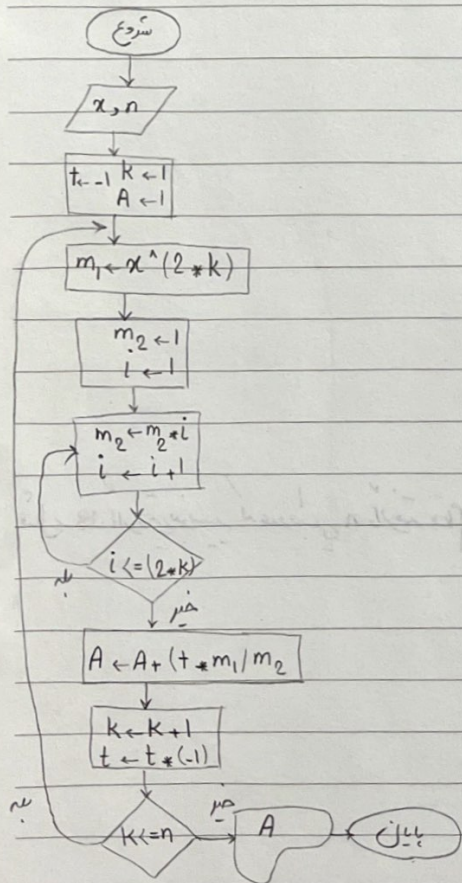 شروع
x, n
t ← -1 k ← 1
A ← 1
m₁ ← x^(2*k)
m₂ ← 1
i ← 1
m₂ ← m₂*i
i ← i+1
i <= (2*k)
بله
خیر
A ← A + (t*m₁/m₂
k ← k+1
t ← t*(-1)
بله
k<=n
خیر
A
پایان